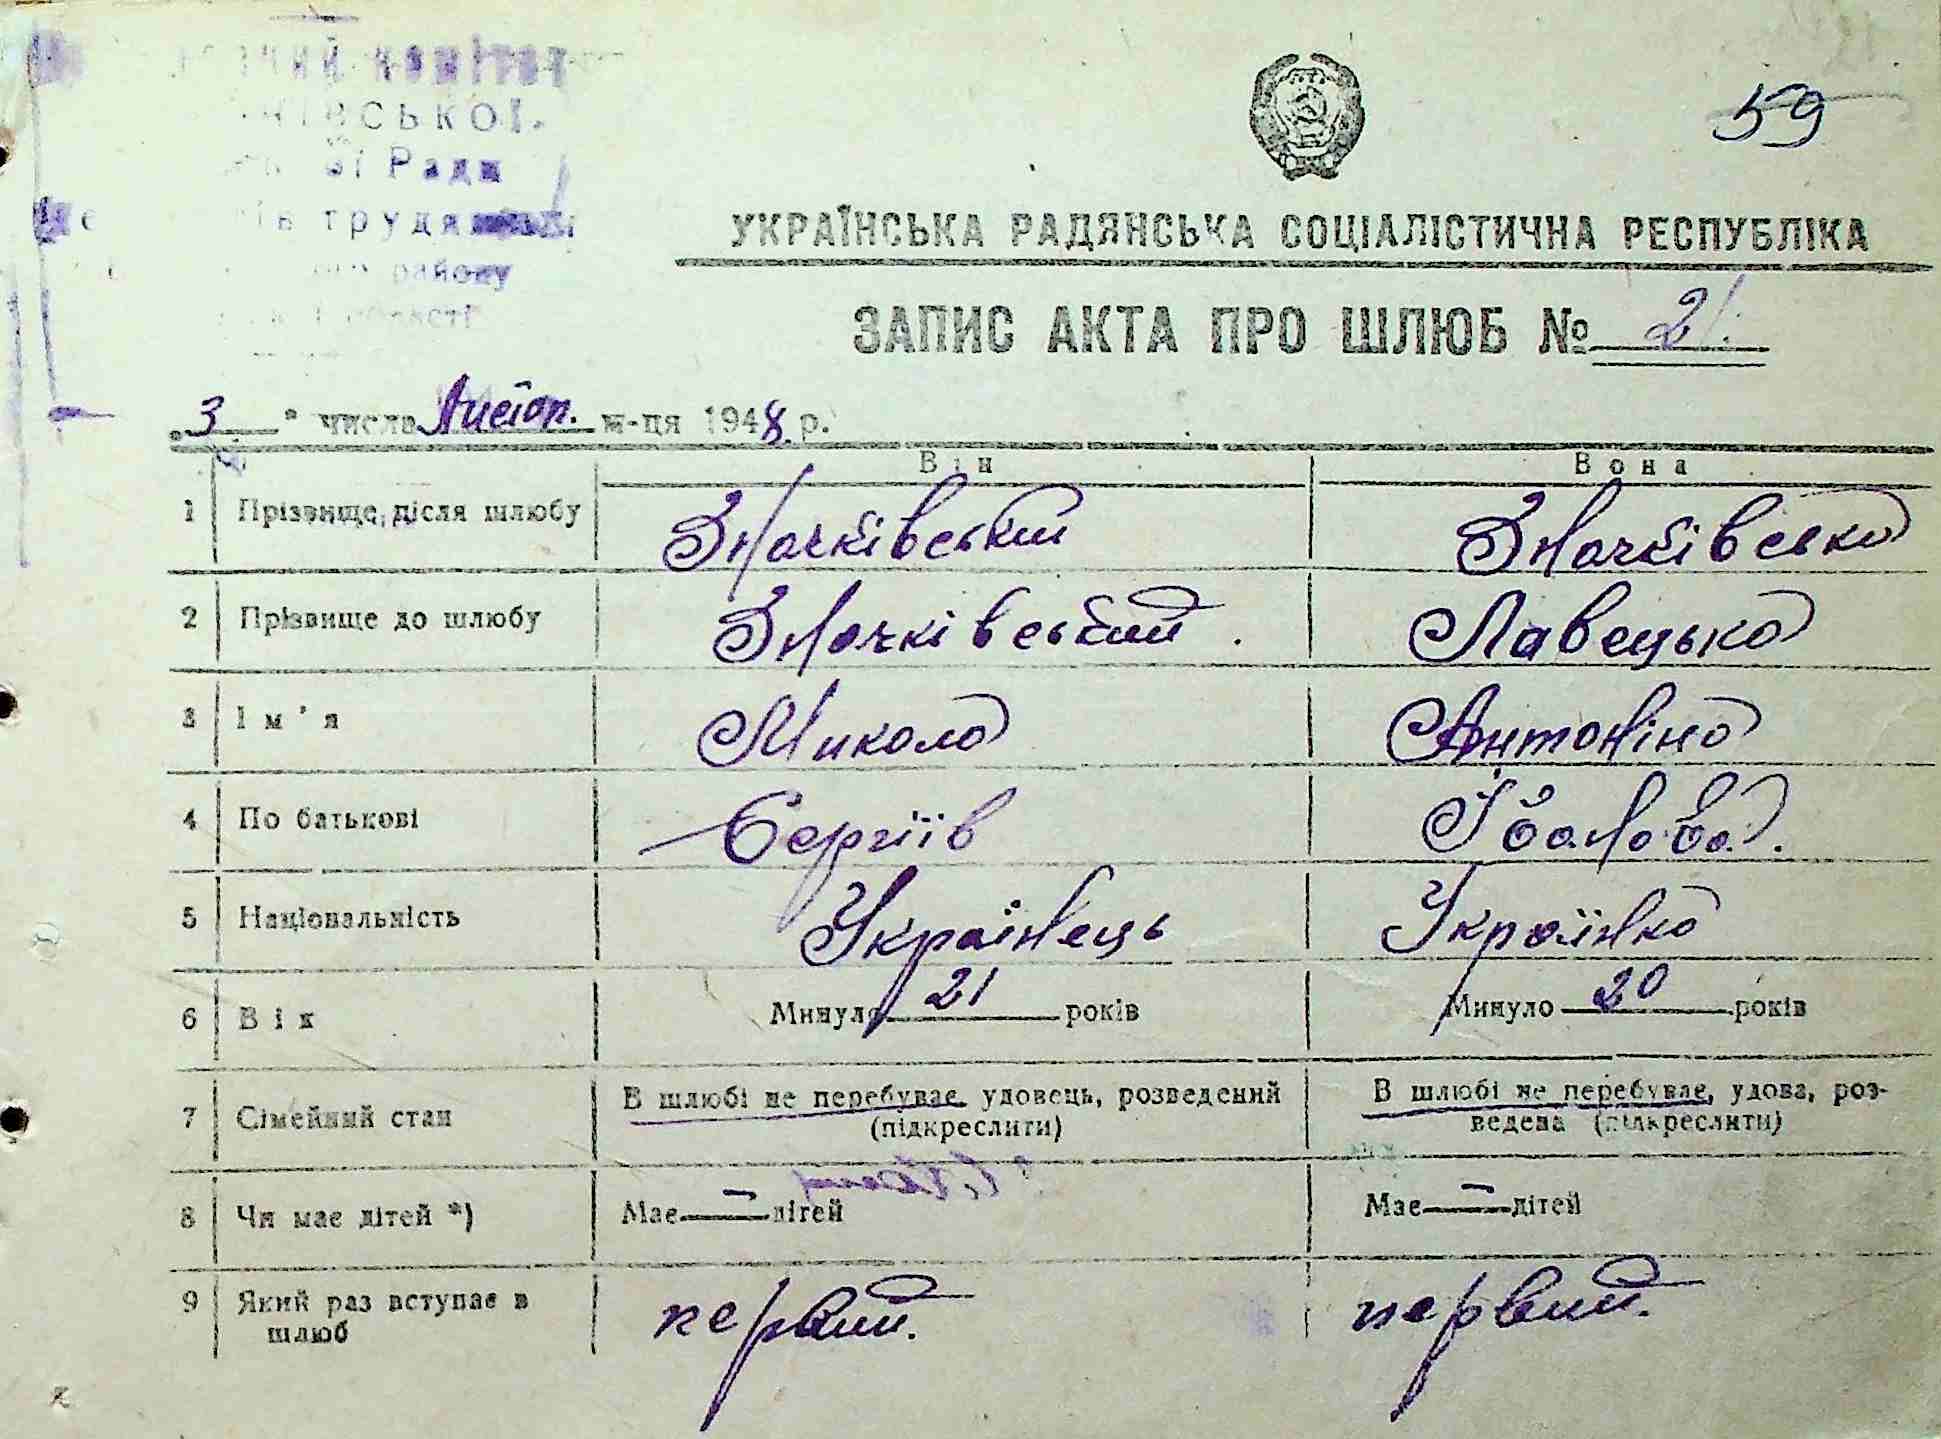 комітет
ської
Ради
труда
району
області
59
УКРАЇНСЬКА РАДЯНСЬКА СОЦІАЛІСТИЧНА РЕСПУБЛІКА
ЗАПИС АКТА ПРО ШЛЮБ № 21.
„3" числа Листоп. м-ця 1948 р.
Він Вона
1 Прізвище після шлюбу Значківський Значківська
2 Прізвище до шлюбу Значківський. Лавецька
3 Ім'я Микола Антоніна
4 По батькові Сергіїв Івалова.
5 Національність Українець Українка
6 Вік Минуло 21 років Минуло 20 років
7 Сімейний стан В шлюбі не перебуває, удовець, розведений (підкреслити) В шлюбі не перебуває, удова, розведена (підкреслити)
8 Чи має дітей *) Має — дітей Має — дітей
9 Який раз вступає в шлюб первий. первий.